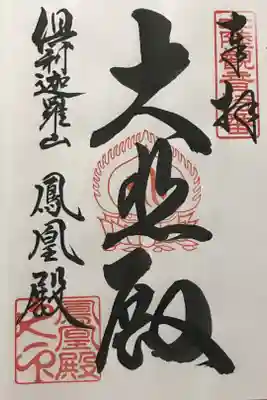 奉拝
大悲殿
倶利迦羅山 鳳凰殿
鳳凰殿之印